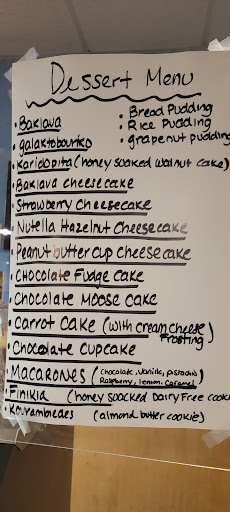 Dessert Menu
• Baklava
• Bread Pudding
• Rice Pudding
• grapenut pudding
• galaktobouriko
• Karidopita (honey soaked walnut cake)
• Baklava cheesecake
• Strawberry Cheesecake
• Nutella Hazelnut Cheesecake
• Peanut butter cup cheesecake
• CHocolate Fudge Cake
• Chocolate Moose Cake
• Carrot Cake (with cream cheese Frosting)
• Chocolate Cupcake
• Macarones (Chocolate, Vanilla, pistachio
Raspberry, lemon, caramel)
• Finikia (honey soacked Dairy Free cook
• Kourambiedes (almond butter cookie)